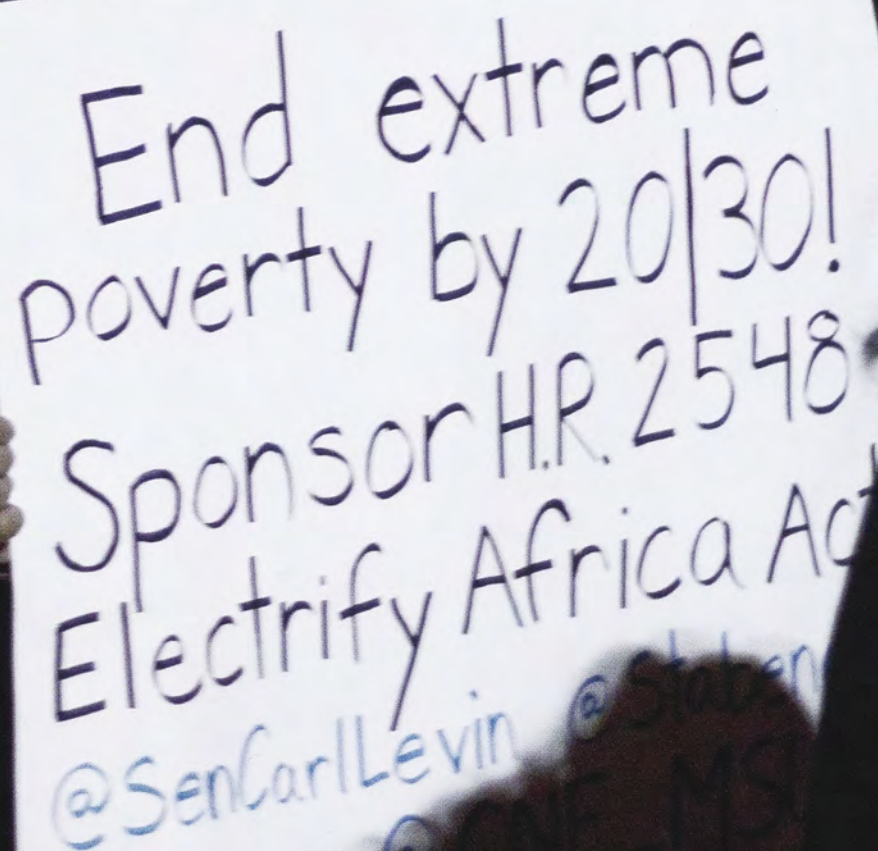 End extreme
poverty by 20|30!
Sponsor H.R. 2548
Electrify Africa Act
@SenCarlLevin @Staben
MSU